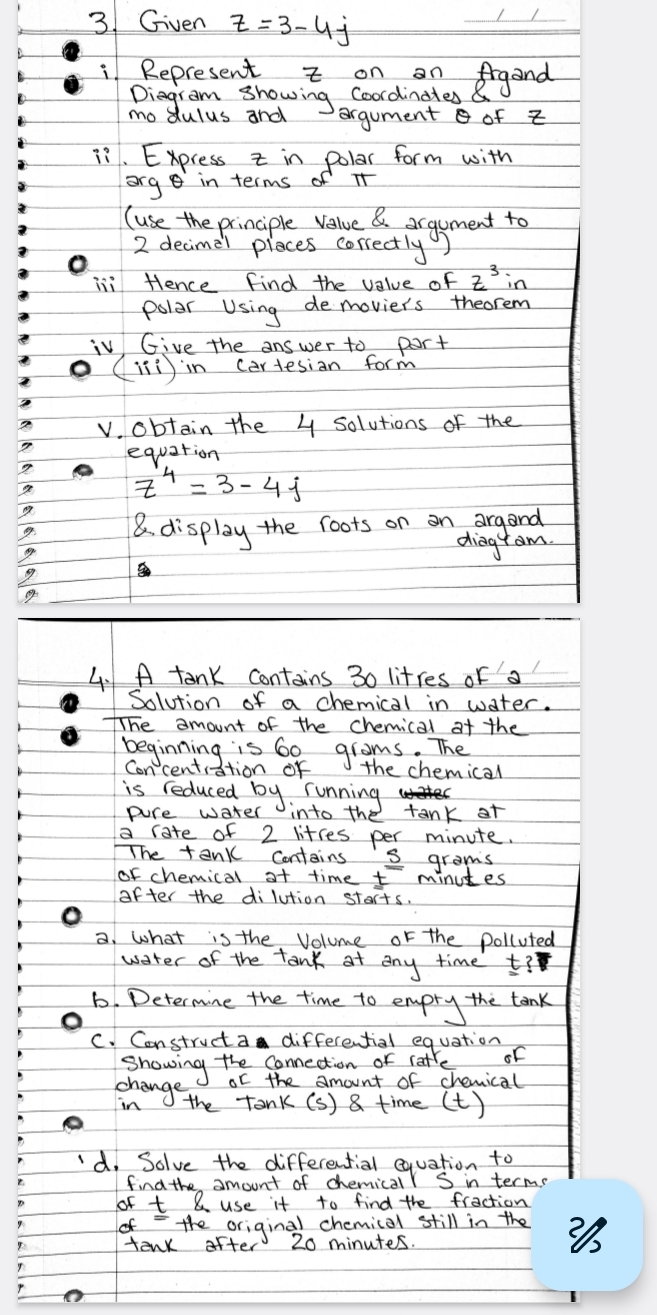 3. Given z = 3 - 4j
i. Represent z on an Argand
Diagram showing Coordinates &
modulus and argument θ of z
ii. Express z in polar form with
arg θ in terms of π
(use the principle value & argument to
2 decimal places correctly)
iii Hence find the value of z³ in
polar using de movier's theorem
iv Give the answer to part
(iii) in cartesian form
v. Obtain the 4 solutions of the
equation
z⁴ = 3 - 4j
& display the roots on an argand
diagram.
4. A tank contains 30 litres of a
Solution of a chemical in water.
The amount of the chemical at the
beginning is 60 grams. The
Concentration of the chemical
is reduced by running water
pure water into the tank at
a rate of 2 litres per minute.
The tank contains s grams
of chemical at time t minutes
after the dilution starts.
a. what is the Volume of the polluted
water of the tank at any time t?
b. Determine the time to empty the tank
c. Construct a differential equation
showing the connection of rate of
change of the amount of chemical
in the Tank (s) & time (t)
d. Solve the differential equation to
find the amount of chemical S in terms
of t & use it to find the fraction
of the original chemical still in the
tank after 20 minutes.